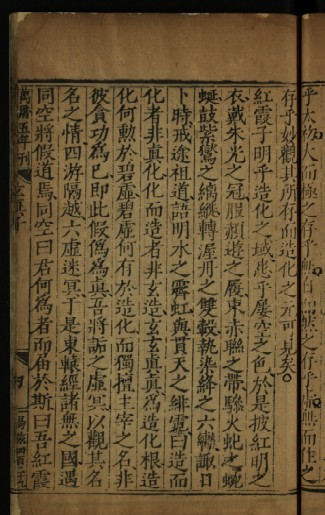 乎太物人而極之存乎無自而無之存乎無而住之
存乎妙觀其所存而造化之元可見矣
紅霞子明乎造化之域悲乎屢空之色於是披紅明之
衣戴朱光之冠服頳遊之履束赤聯之帶驂火虬之蜿
蜒鼓紫鸞之繽繼轉渥丹之雙轂執染絳之六轡諏日
卜時戒途祖道語明水之霽虹與貫天之緋霓曰造而
化者非真化化而造者非玄造玄玄真真為造化根造
化何勲於碧虛碧虛何有於造化而獨擅主宰之名非
彼貪功為已即此假偽為真吾將詬之虛冥以觀其名
名之情四游隔越六虛迷冥于是東轅經諸無之國遇
同空將假道焉同空曰君何為者而届於斯曰吾紅霞
萬曆五年刊
玄真子
四